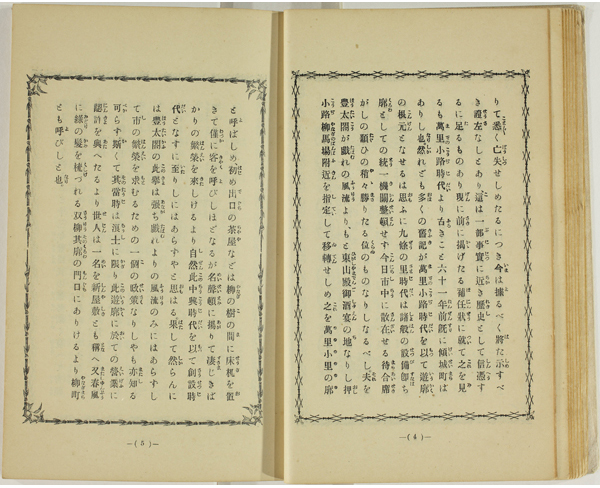 りて悉く亡失せしめたるにつき今は據るべく將た示すべ
き證左なしとあり這は一部事實に近き歴史として信憑す
るに足るものあり現に前に揭げたる補任狀に就て之を見
るも萬里小路時代より古きこと六十一年前旣に傾城町は
ありし也然れども多くの舊記が萬里小路時代を以て遊廓
の根元となせるは思ふに九條の里時代は諸般の設備卽ち
廓としての統一機關整頓せず今日市中に散在せる待合席
がしの類ひの稍々勝りたる位のものなりしなるべし夫を
豊太閤が戯れの風流よりもと東山殿御酒宴の地なりし押
小路柳馬場附近を指定して移轉せしめ之を萬里小里の廓
―(4)―
と呼ばしめ初め出口の茶屋などは柳の樹の間に床机を置
きて僅に客を呼びしほどなるが名聲頓に揚りて凄じきば
かりの繁榮を來しけるより自然此中興時代を以て創設時
代となすに至りしにはあらずやと思はる果して然らんに
は豊太閤の此擧は强ち戯れよりの風流のみにはあらずし
て市の繁榮を求むるための一個の政策なりしやも亦知る
可らず斯くて其當時は浪士に限り此遊廓に於ての營業に
認許を與へたるより世人は一名を新屋敷とも稱へ又春風
に緑の髮を梳づれる双柳其廓の門口にありけるより柳町
とも呼びしと也
―(5)―